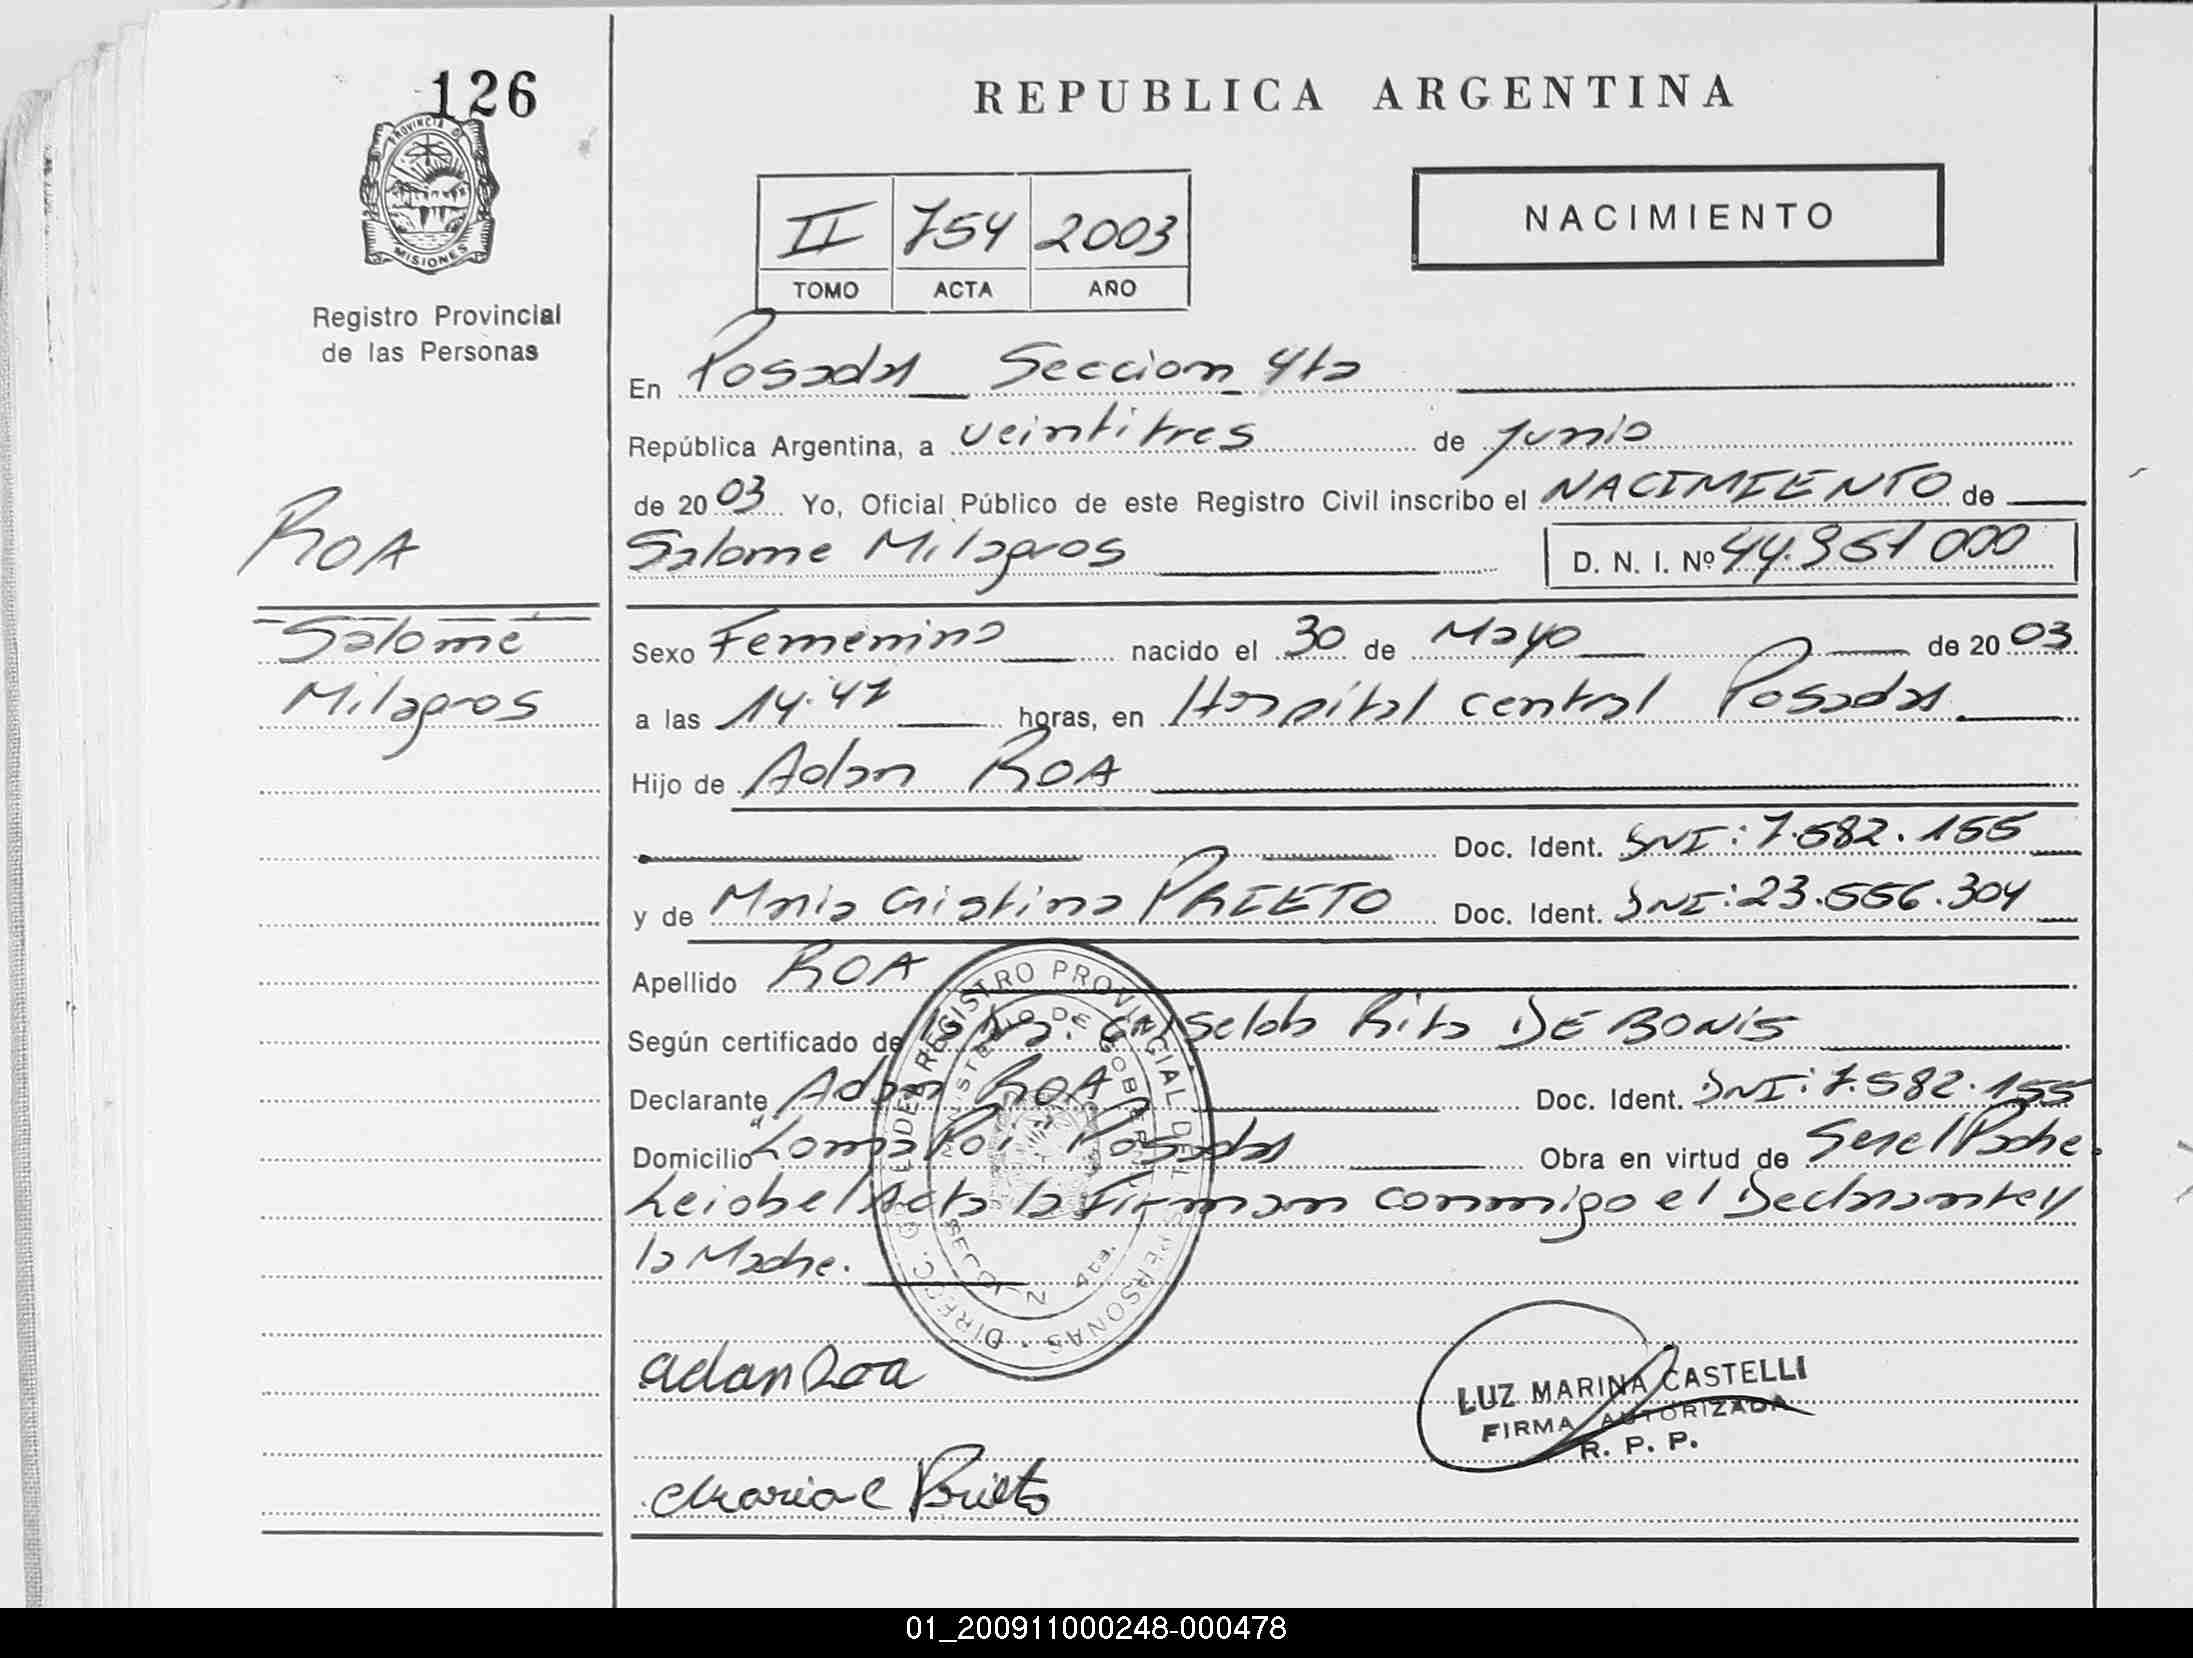 126
REPUBLICA ARGENTINA
PROVINCIA D
MISIONES
Registro Provincial
de las Personas
II 754 2003
TOMO ACTA AÑO
NACIMIENTO
En Posadas Seccion 4ta
República Argentina, a veintitres de Junio
de 2003 Yo, Oficial Público de este Registro Civil inscribo el NACIMIENTO de
ROA
Salome Milagros D. N. I. Nº 44.951 000
Salome
Milagros
Sexo Femenino nacido el 30 de Mayo de 2003
a las 14:47 horas, en Hospital central Posadas
Hijo de Adan ROA
Doc. Ident. DNI: 7.582.155
y de Maria Cristina PRIETO Doc. Ident. DNI: 23.556.304
Apellido ROA
Según certificado de la Dra. Griselda Rita DE BONIS
Declarante Adan ROA Doc. Ident. DNI: 7.582.155
Domicilio "Loma Posadas Obra en virtud de Ser el Padre.
Leida el Acta la Firman conmigo el Declarante y
la Madre.
DIREC. GRAL. DEL REGISTRO PROVINCIAL DE LAS PERSONAS
MINISTERIO DE GOBIERNO
SECCION 4ta.
adan Roa
LUZ MARINA CASTELLI
FIRMA AUTORIZADA
R. P. P.
Maria C Prieto
01_200911000248-000478